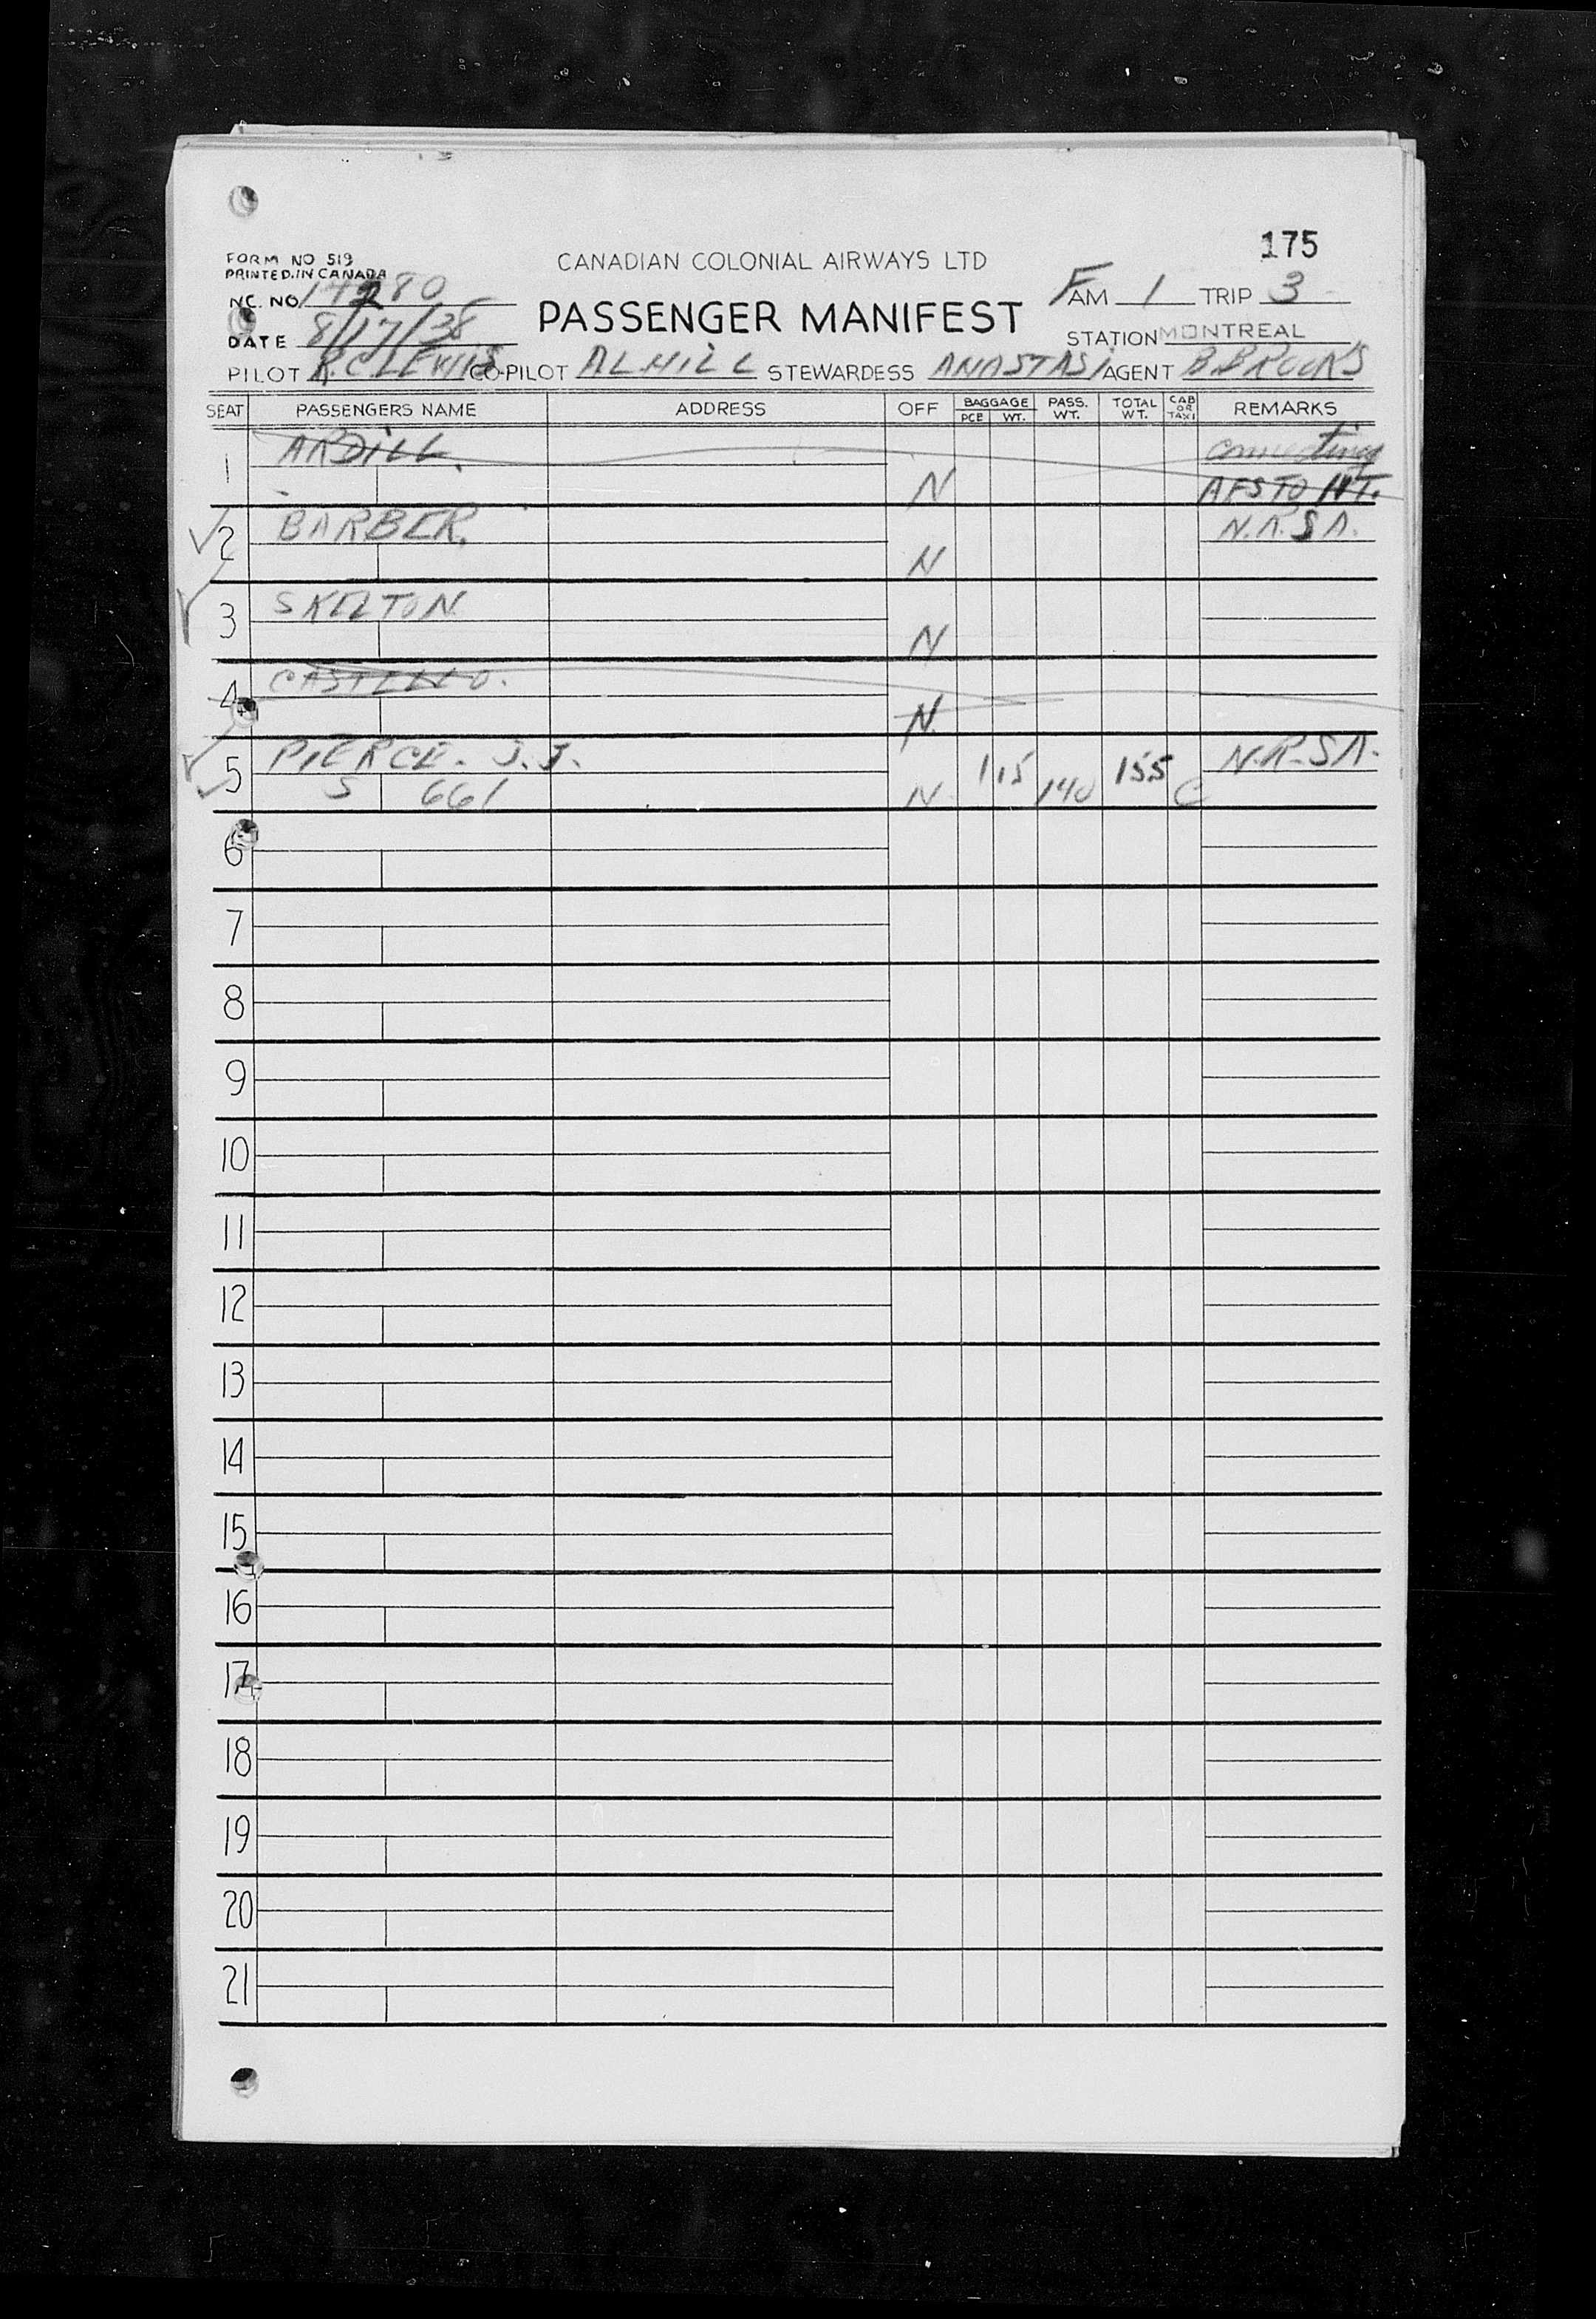 175
FORM NO 519
PRINTED.IN CANADA
CANADIAN COLONIAL AIRWAYS LTD
NC. NO 14280
PASSENGER MANIFEST
FAM 1 TRIP 3
DATE 8/17/38
STATION MONTREAL
PILOT R.C LEWIS CO-PILOT AL HILL STEWARDESS ANASTASI AGENT B.BROOKS
SEAT PASSENGERS NAME ADDRESS OFF BAGGAGE PCE WT. PASS. WT. TOTAL WT. CAB OR TAXI REMARKS
1 ARDILL. N connecting
AFS TO NT.
2 BARBER. N N.R.S.A.
3 SKELTON N
4 CASTELLO. N.
5 PIERCE. J.J. 1 15 155 N.R.SA.
S 661 N 140 C
6
7
8
9
10
11
12
13
14
15
16
17
18
19
20
21